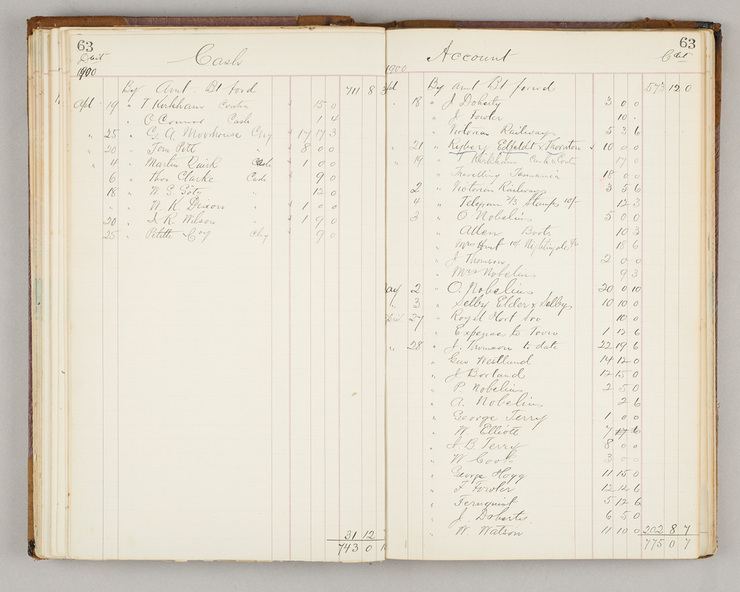 63
Cash
1900
By Amt Bt ford 711 8 3
Apl 19 " T Kirkham Contra " 15 0
" O Connor Cash 1 4
" 25 " G A Moorhouse Chq " 17 17 3
" 20 " Tom Pott " " 8 0 0
" 4 " Martin Quirk Cash " 1 0 0
6 " Thos Clarke Cash " 9 0
18 " " 12 0
" " W K Dixon " " 1 0 0
" 20 " R Wilson " " 1 9 0
" 25 " Chq " 9 0
31 12
743 0
63
Account
1900
By amt Bt forwd 573 12 0
18 " J Doherty 3 0 0
" J Fowler 10 -
" Victorian Railways 5 3 6
21 " Thornton 10 0 0
19 " T Kirkham Cash & Conta 17 0
" Travelling Tasmania 18 0 0
2 " Victorian Railways 3 3 6
4 " Telegram Stamps 12 3
3 " O Nobelius 5 0 0
" Allen Boots 10 3
" Mrs Hunt 18 6
" J Thomson 2 0 0
" Mrs Nobelius 9 3
May 2 " O. Nobelius 20 0 10
" 3 " Selby Elder & Selby 10 10 0
27 " Royal Hort Soc 10 0
" Expenses to Tooro 1 12 6
" 28 " J. Thomson to date 22 19 6
" Gus Westlund 14 12 0
" J Borland 12 15 0
" P Nobelius 2 5 0
" A. Nobelius 2 6
" George Terry 1 0 0
" W. Elliott 7 17 6
" J. B Terry 8 0 0
" W Cook 3 0 0
" George Hogg 11 15 0
" F Fowler 12 12 6
" Fernquist 5 12 6
" J. Doherty 6 5 0
" W. Watson 11 10 0 202 8 7
775 0 7